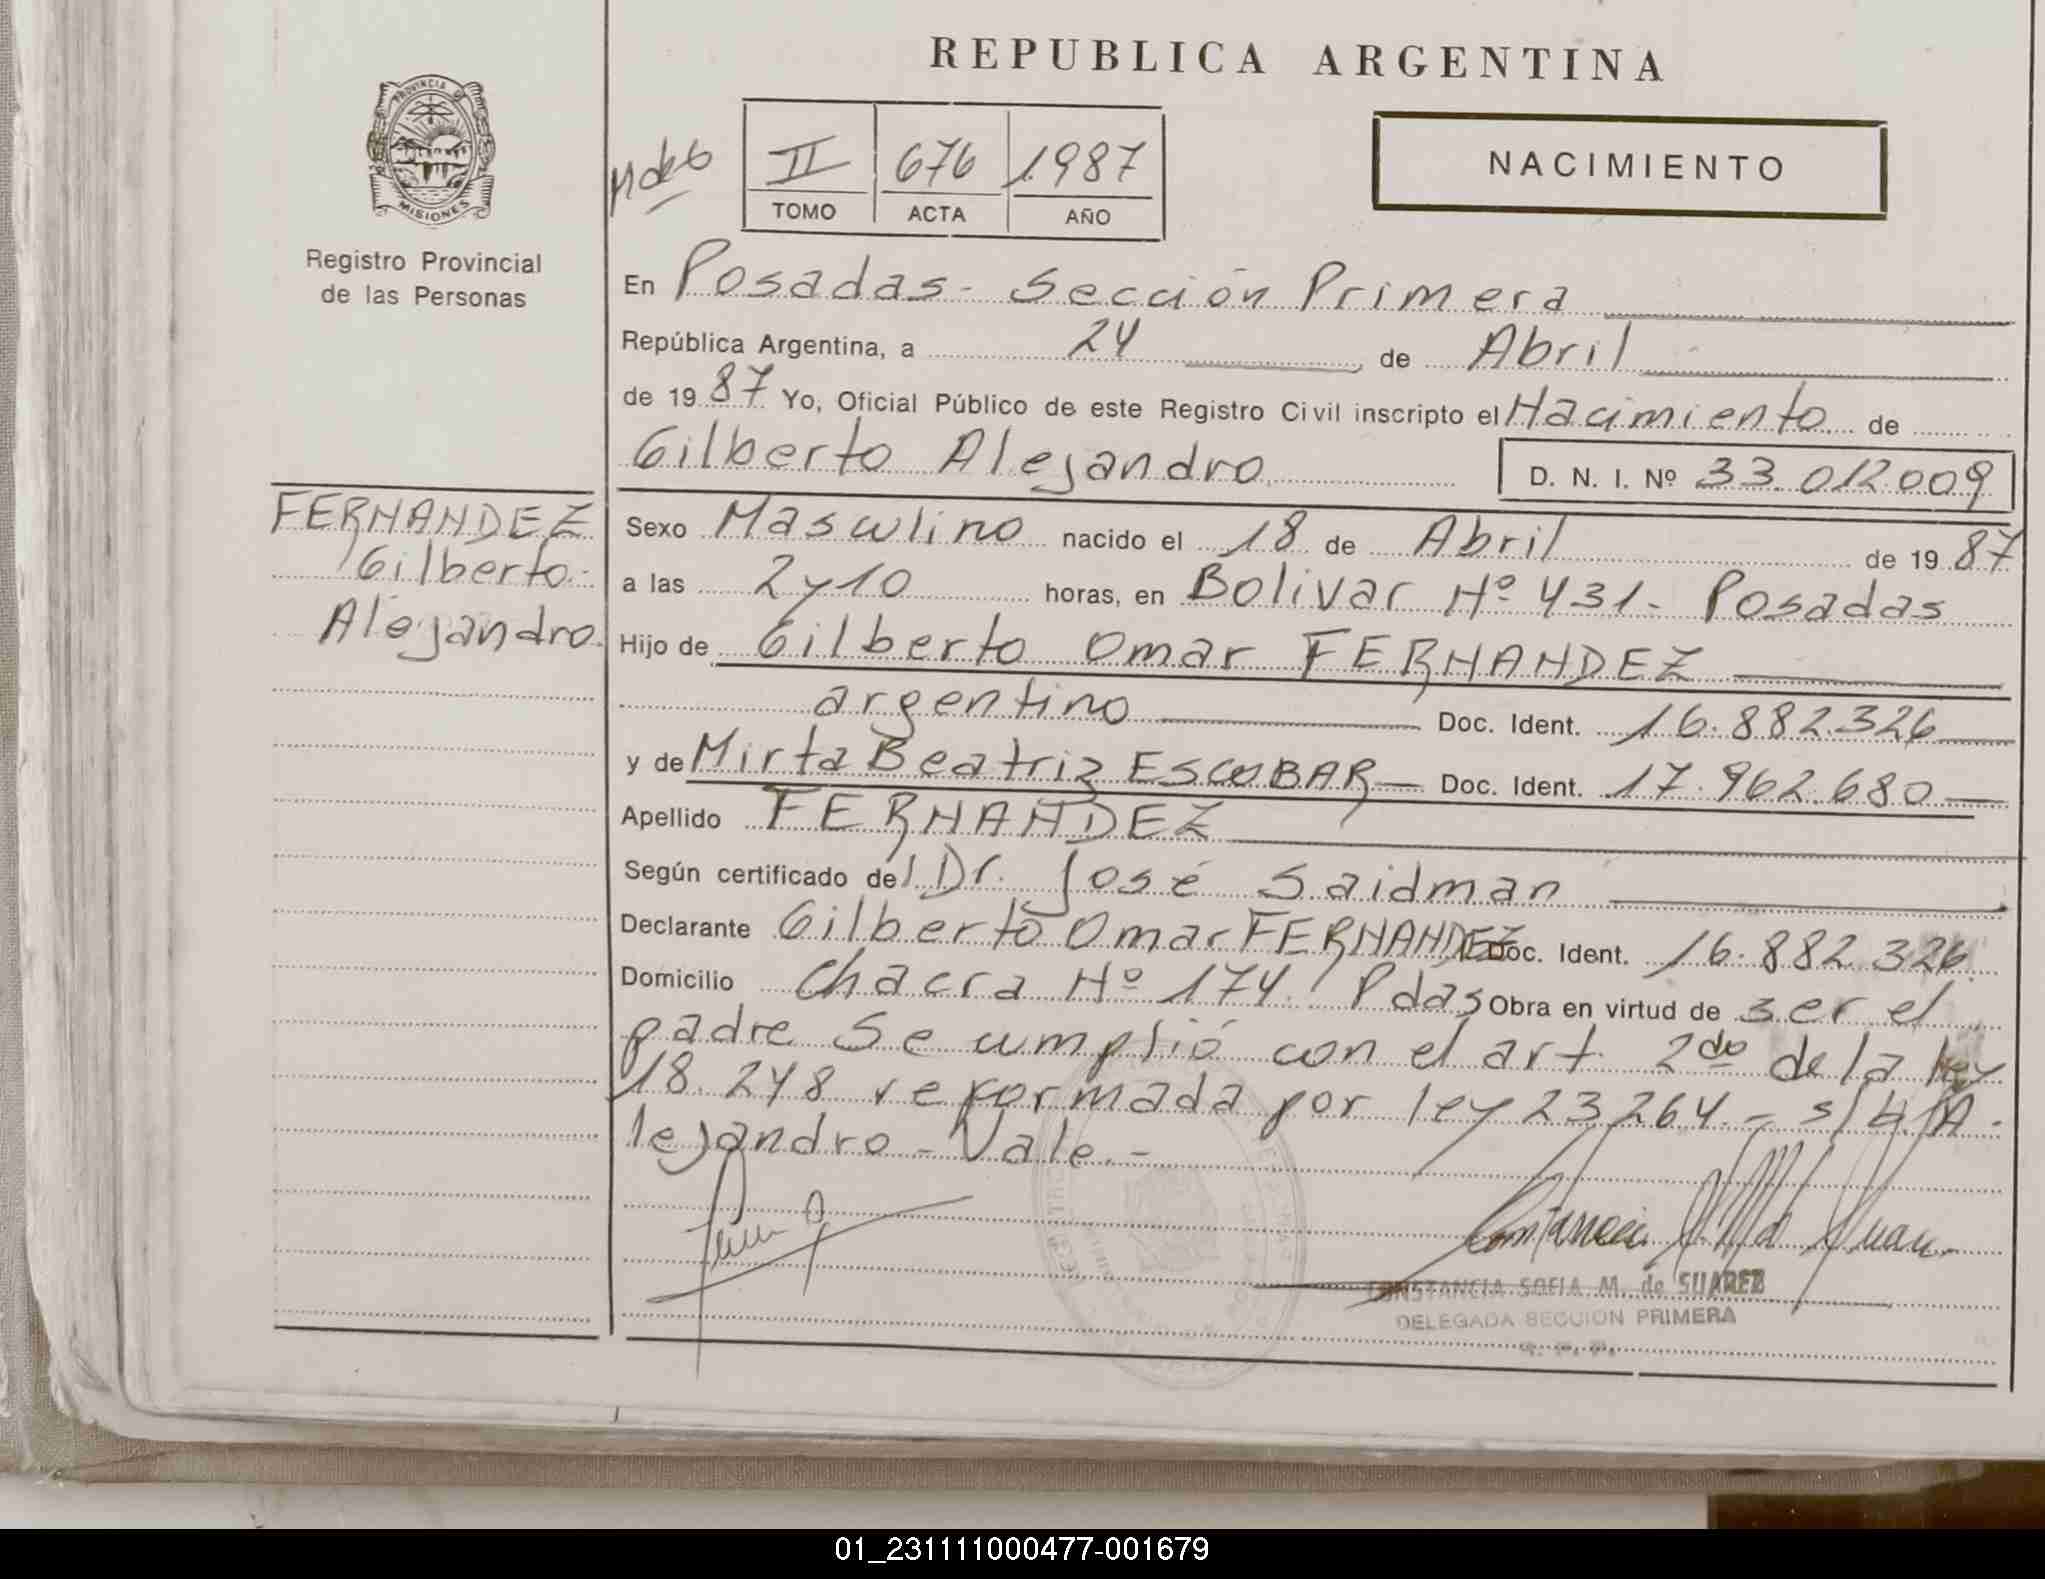 REPUBLICA ARGENTINA
PROVINCIA DE
MISIONES
Registro Provincial
de las Personas
II 676 1.987
TOMO ACTA AÑO
NACIMIENTO
En Posadas - Sección Primera
República Argentina, a 24 de Abril
de 19 87 Yo, Oficial Público de este Registro Civil inscripto el Nacimiento de
Gilberto Alejandro D. N. I. Nº 33.012009
FERNANDEZ
Gilberto
Alejandro
Sexo Masculino nacido el 18 de Abril de 19 87
a las 2 y 10 horas, en Bolivar Nº 431 - Posadas
Hijo de Gilberto Omar FERNANDEZ
argentino Doc. Ident. 16.882.326
y de Mirta Beatriz ESCOBAR Doc. Ident. 17.962.680
Apellido FERNANDEZ
Según certificado del Dr. José Saidman
Declarante Gilberto Omar FERNANDEZ Doc. Ident. 16.882.326
Domicilio Chacra Nº 174. Pdas Obra en virtud de ser el
padre Se cumplió con el art. 2do de la ley
18.248 reformada por ley 23.264 - s/b. A-
lejandro - Vale. -
CONSTANCIA SOFIA M. de SUAREZ
DELEGADA SECCION PRIMERA
R. P. P.
01_231111000477-001679